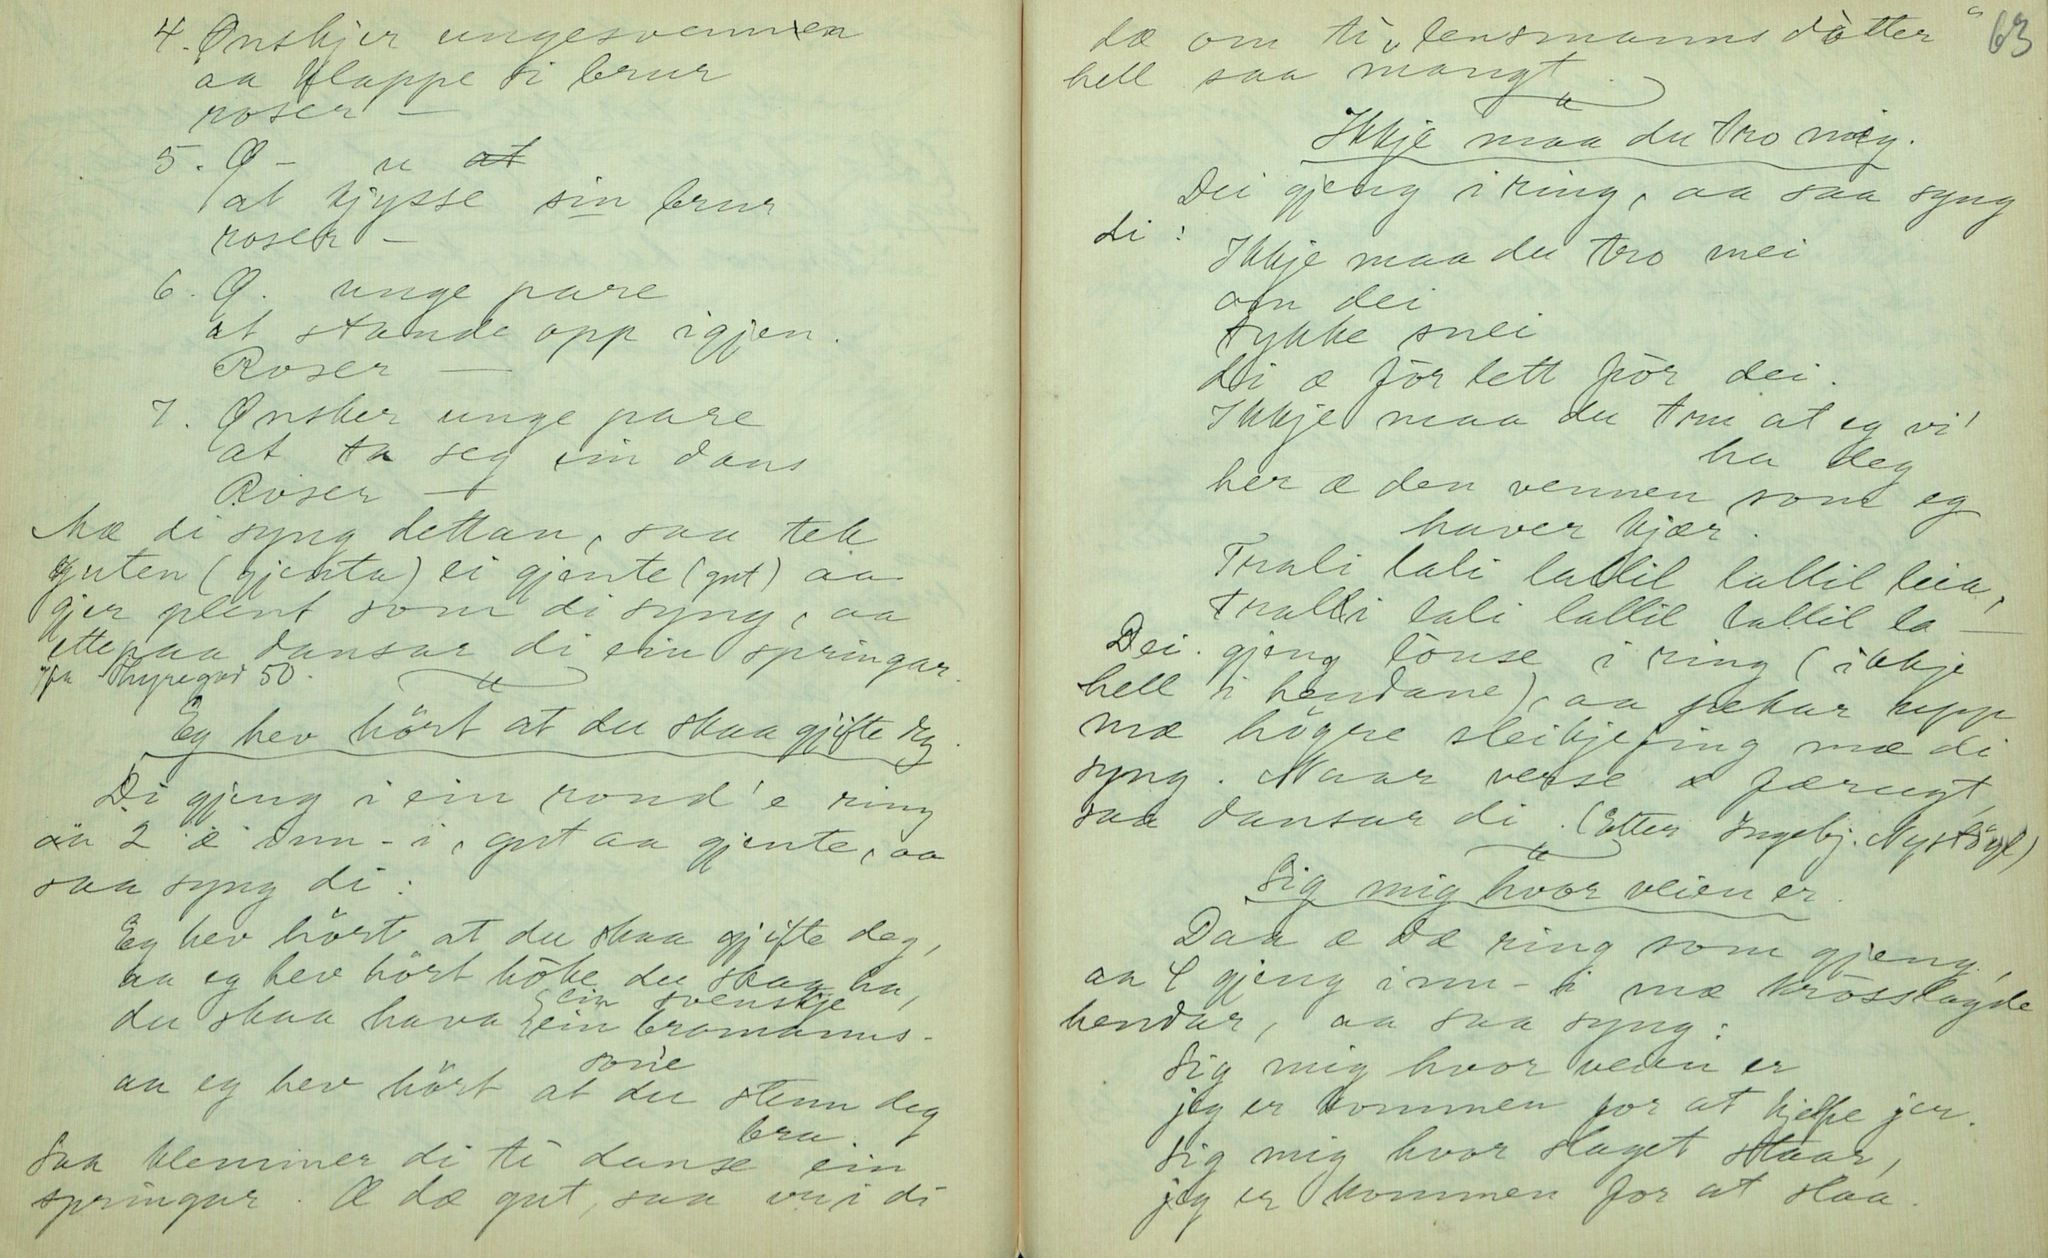 4. Ønskjer ungesvennen
aa klappe si brur
roser —
5. Ø — " at
at kjysse sin brur
roser —
6. Ø. unge pare
at stande opp igjen.
Roser —
7. Ønsker unge pare
at ta seg ein dans
Roser —
Mæ di syng dettan, saa tek
guten (gjenta) ei gjente (gut) aa
gjer plent som di syng, aa
ettepaa dansar di ein springar.
Thyregod 50.
Eg hev hört at du skaa gjifte deg.
Di gjeng i ein rond'e ring
aa 2 æ inn-i, gut aa gjente, aa
saa syng di:
Eg hev hört at du skaa gjifte deg,
aa eg hev hört höke du skaa ha,
ein svenskje
du skaa hava ein bromanns-
sone
aa eg hev hört at du stenn deg
bra.
Saa klemmer di ti danse ein
springar. Æ dæ gut, saa vri di
63
dæ om ti „lensmanns dòtter"
hell saa mangt.
Ikkje maa du tro mig.
Dei gjeng i ring, aa saa syng
di:
Ikkje maa du tro mei
om dei
tykke snei
di æ för lett för dei.
Ikkje maa du tru at eg vi'
ha deg
her æ den vennen som eg
haver kjær.
Trali lali lallil lallil leia,
tralli lali lallil lallil la —
Dei gjeng louse i ring (ikkje
hell i hendane), aa pekar upp
mæ högre sleikjefing mæ di
syng. Naar verse æ færugt,
saa dansar di. (Etter Ingebj. Nystögl)
Sig mig hvor veien er.
Daa æ dæ ring som gjeng,
aa 4 gjeng inn-i mæ krosslagde
hendar, aa saa syng:
Sig mig hvor veien er
jeg er kommen for at hjelpe jer.
Sig mig hvor slaget staar,
jeg er kommen for at slaa.